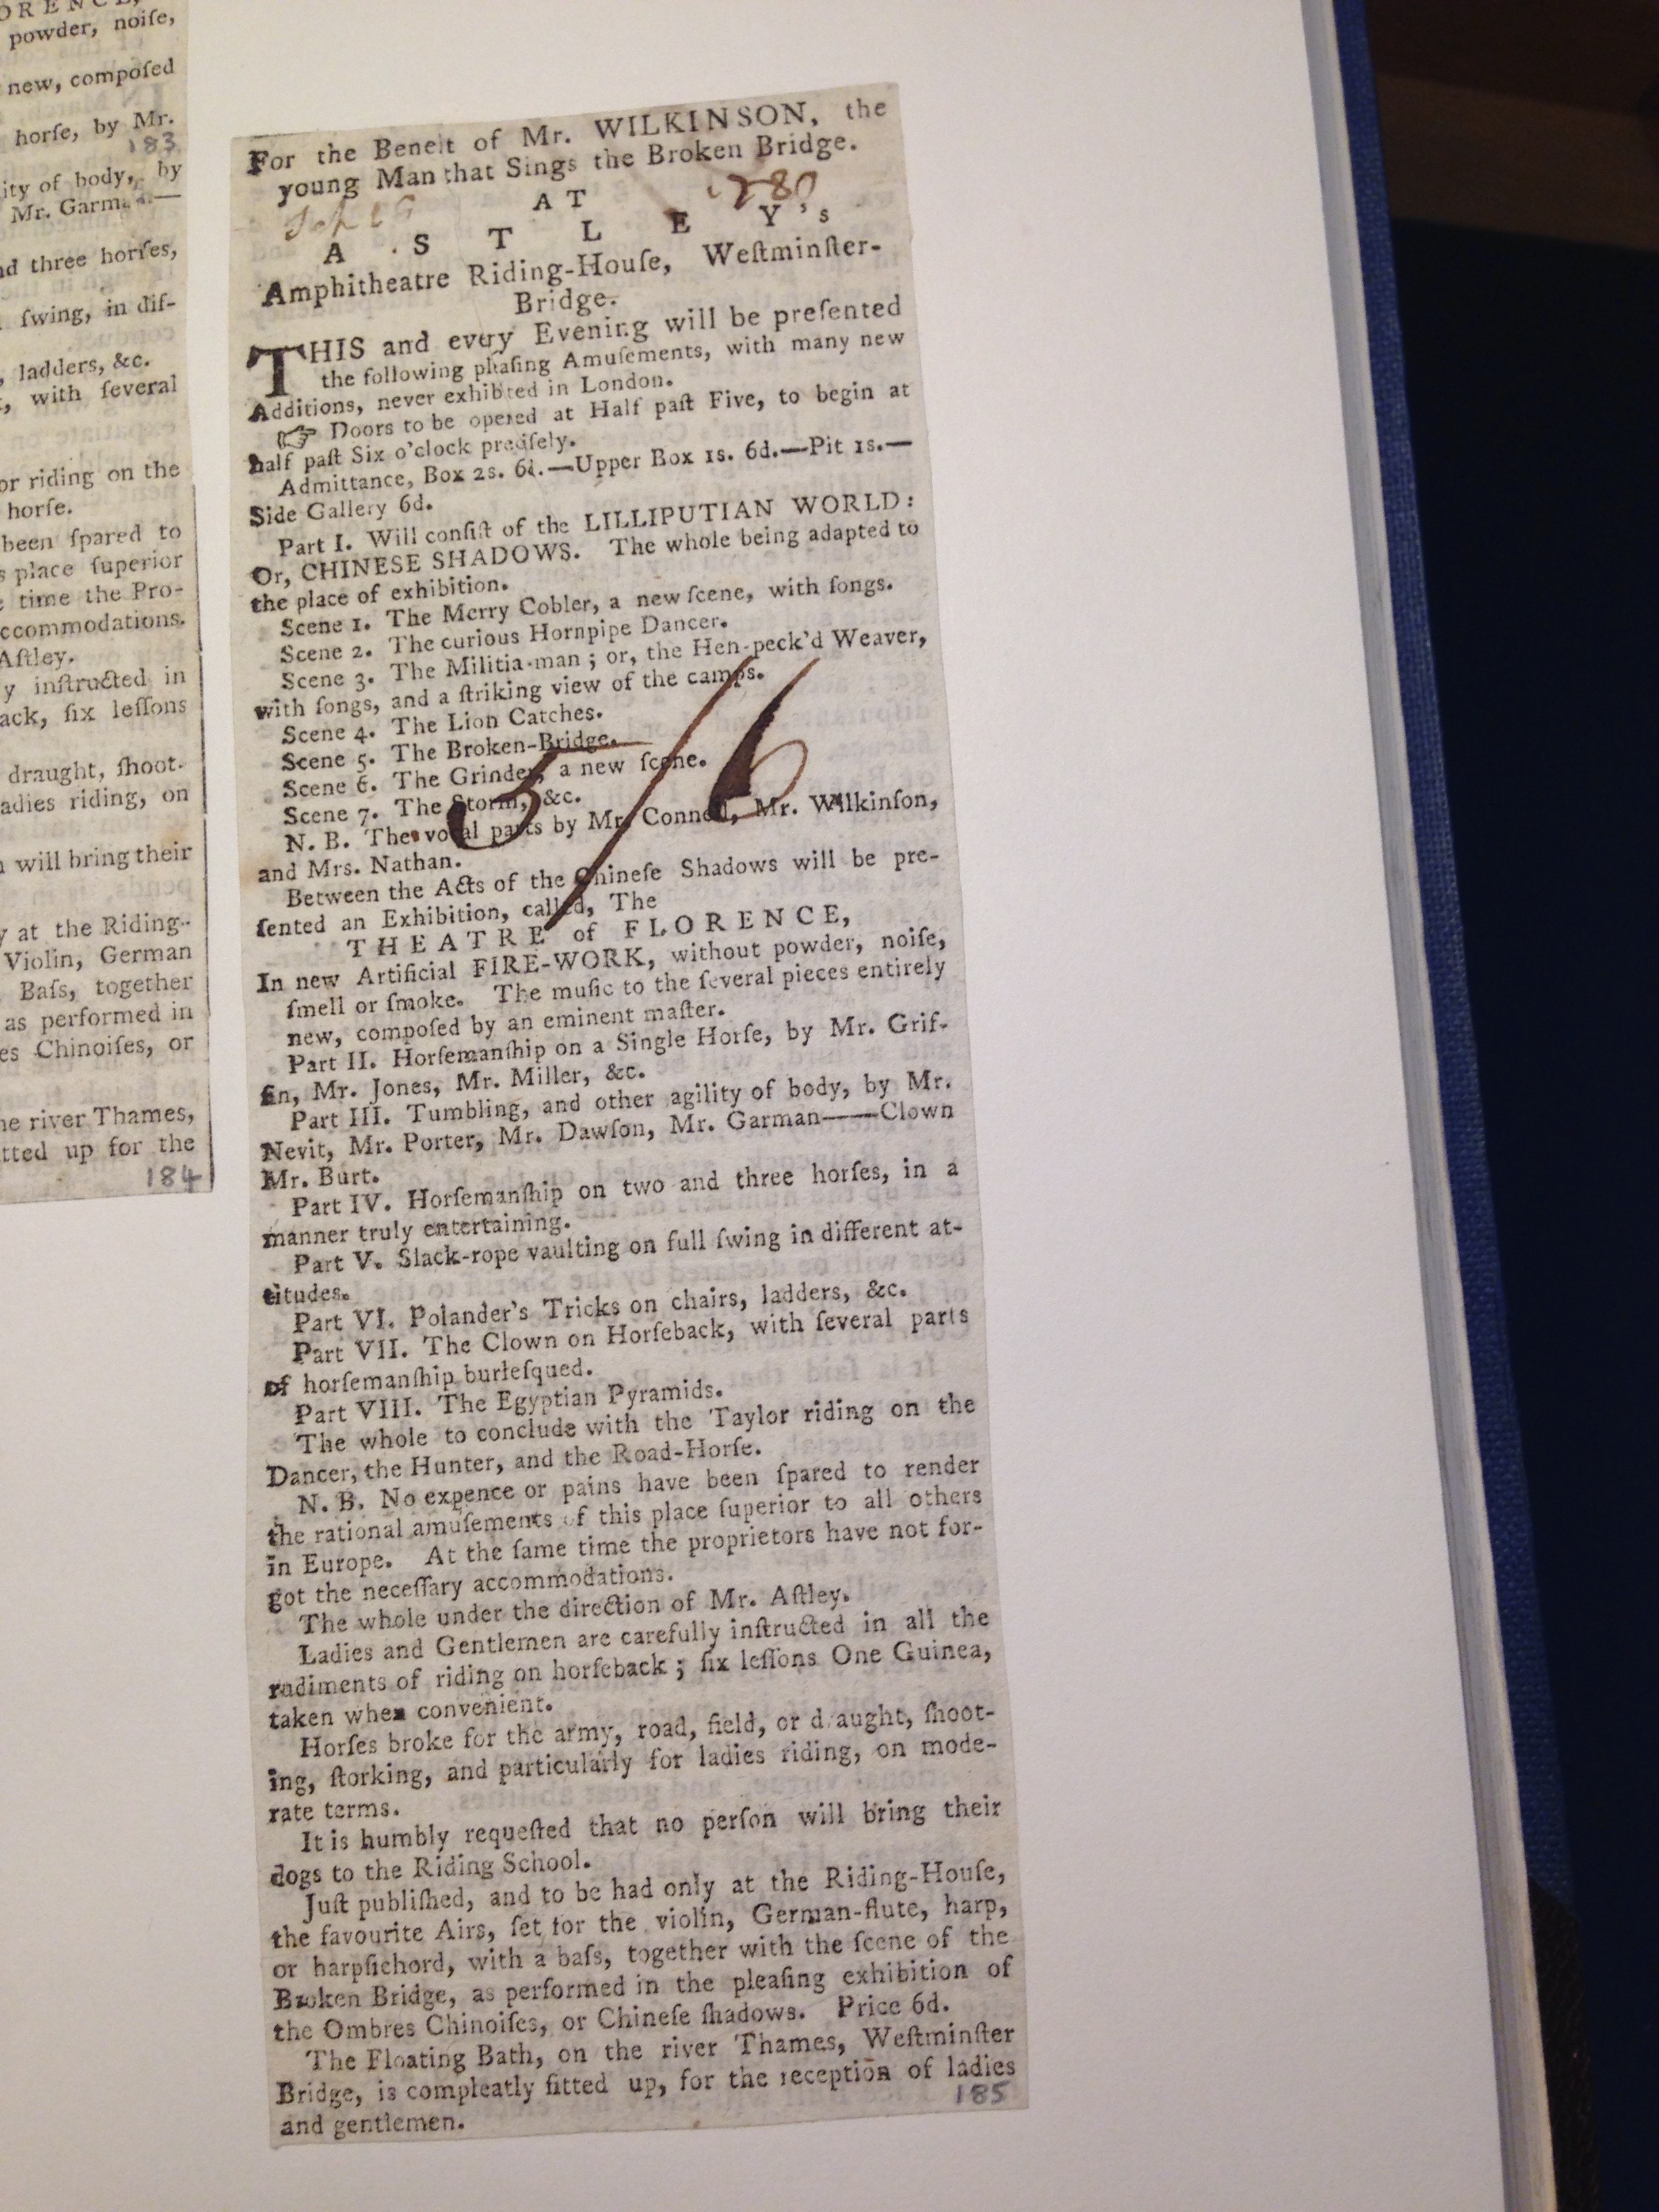 ORENCE,
powder, noiſe,
new, compoſed
horſe, by Mr.
183
ity of body, by
Mr. Garman.—
nd three horſes,
ſwing, in diſ-
, ladders, &c.
, with ſeveral
or riding on the
horſe.
been ſpared to
s place ſuperior
e time the Pro-
ccommodations.
Aſtley.
y inſtructed in
ack, ſix leſſons
draught, ſhoot-
adies riding, on
n will bring their
y at the Riding-
Violin, German
Baſs, together
as performed in
es Chinoiſes, or
he river Thames,
tted up for the
184
For the Benefit of Mr. WILKINSON, the
young Man that Sings the Broken Bridge.
1780
AT
ASTLEY's
Amphitheatre Riding-Houſe, Weſtminſter-
Bridge.
THIS and every Evening will be preſented
the following pleaſing Amuſements, with many new
Additions, never exhibited in London.
☞ Doors to be opened at Half paſt Five, to begin at
half paſt Six o'clock preciſely.
Admittance, Box 2s. 6d.—Upper Box 1s. 6d.—Pit 1s.—
Side Gallery 6d.
Part I. Will conſiſt of the LILLIPUTIAN WORLD:
Or, CHINESE SHADOWS. The whole being adapted to
the place of exhibition.
Scene 1. The Merry Cobler, a new ſcene, with ſongs.
Scene 2. The curious Hornpipe Dancer.
Scene 3. The Militia-man; or, the Hen-peck'd Weaver,
with ſongs, and a ſtriking view of the camps.
Scene 4. The Lion Catches.
Scene 5. The Broken-Bridge.
Scene 6. The Grinder, a new ſcene.
Scene 7. The Storm, &c.
5/6
N. B. The vocal parts by Mr. Connell, Mr. Wilkinſon,
and Mrs. Nathan.
Between the Acts of the Chineſe Shadows will be pre-
ſented an Exhibition, called, The
THEATRE of FLORENCE,
In new Artificial FIRE-WORK, without powder, noiſe,
ſmell or ſmoke. The muſic to the ſeveral pieces entirely
new, compoſed by an eminent maſter.
Part II. Horſemanſhip on a Single Horſe, by Mr. Grif-
fin, Mr. Jones, Mr. Miller, &c.
Part III. Tumbling, and other agility of body, by Mr.
Nevit, Mr. Porter, Mr. Dawſon, Mr. Garman——Clown
Mr. Burt.
Part IV. Horſemanſhip on two and three horſes, in a
manner truly entertaining.
Part V. Slack-rope vaulting on full ſwing in different at-
titudes.
Part VI. Polander's Tricks on chairs, ladders, &c.
Part VII. The Clown on Horſeback, with ſeveral parts
of horſemanſhip burleſqued.
Part VIII. The Egyptian Pyramids.
The whole to conclude with the Taylor riding on the
Dancer, the Hunter, and the Road-Horſe.
N. B. No expence or pains have been ſpared to render
the rational amuſements of this place ſuperior to all others
in Europe. At the ſame time the proprietors have not for-
got the neceſſary accommodations.
The whole under the direction of Mr. Aſtley.
Ladies and Gentlemen are carefully inſtructed in all the
rudiments of riding on horſeback; ſix leſſons One Guinea,
taken when convenient.
Horſes broke for the army, road, field, or draught, ſhoot-
ing, ſtorking, and particularly for ladies riding, on mode-
rate terms.
It is humbly requeſted that no perſon will bring their
dogs to the Riding School.
Juſt publiſhed, and to be had only at the Riding-Houſe,
the favourite Airs, ſet for the violin, German-flute, harp,
or harpſichord, with a baſs, together with the ſcene of the
Broken Bridge, as performed in the pleaſing exhibition of
the Ombres Chinoiſes, or Chineſe ſhadows. Price 6d.
The Floating Bath, on the river Thames, Weſtminſter
Bridge, is compleatly fitted up, for the reception of ladies
and gentlemen.
185